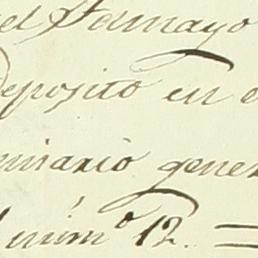 el Tamayo
Deposito en e
misario gener
núm.º 12. =